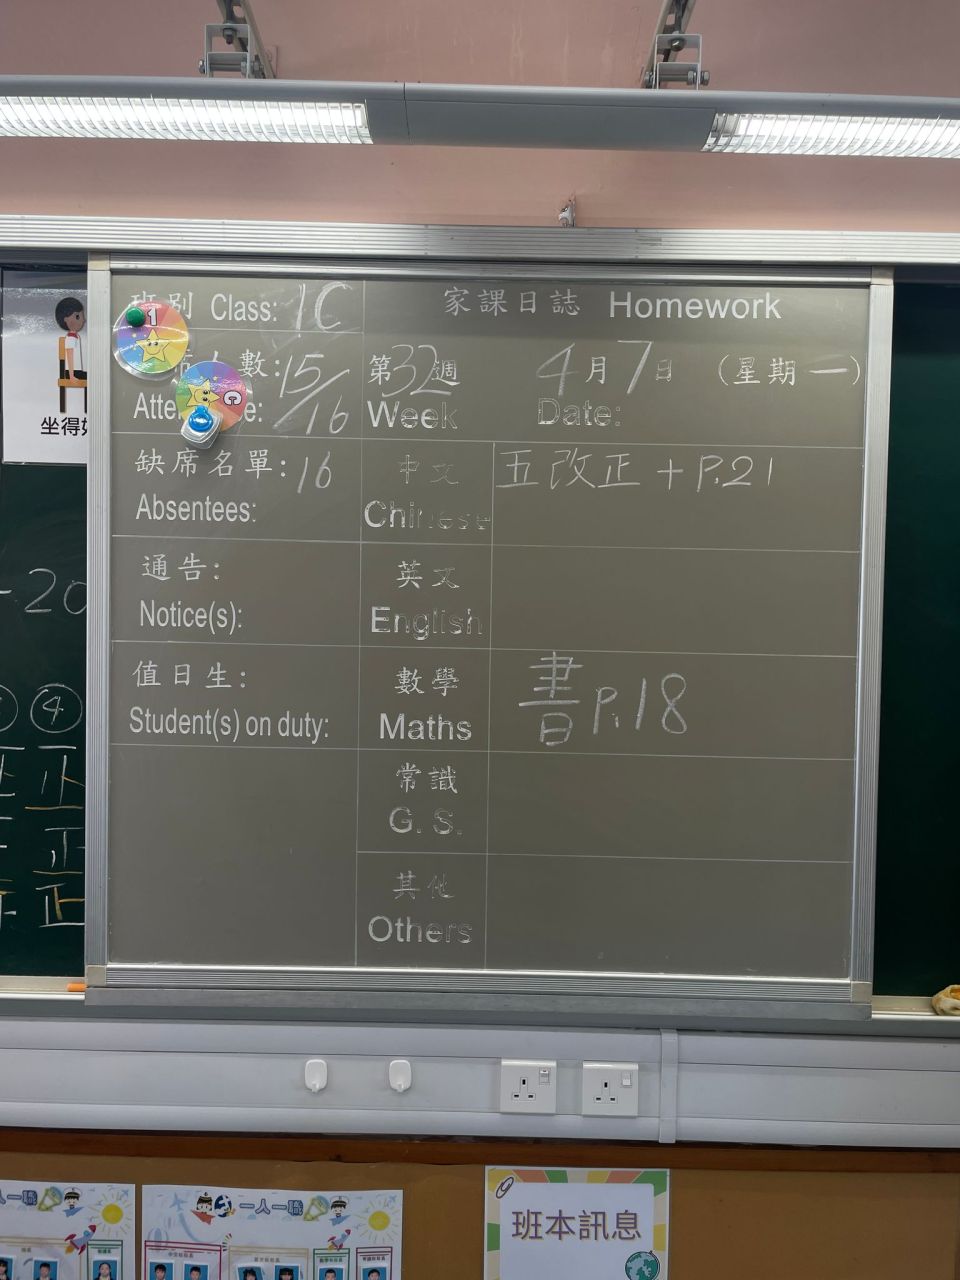 班別 Class: 1C
家課日誌 Homework
席人數: 15/16
第32週
4月7日 (星期一)
Week
Date:
坐得
缺席名單: 16
Absentees:
中文
Chinese
五改正 + P.21
通告:
Notice(s):
英文
English
20
值日生:
Student(s) on duty:
數學
Maths
書 P.18
④
正
正
正
常識
G. S.
其他
Others
一人一職
一人一職
班本訊息